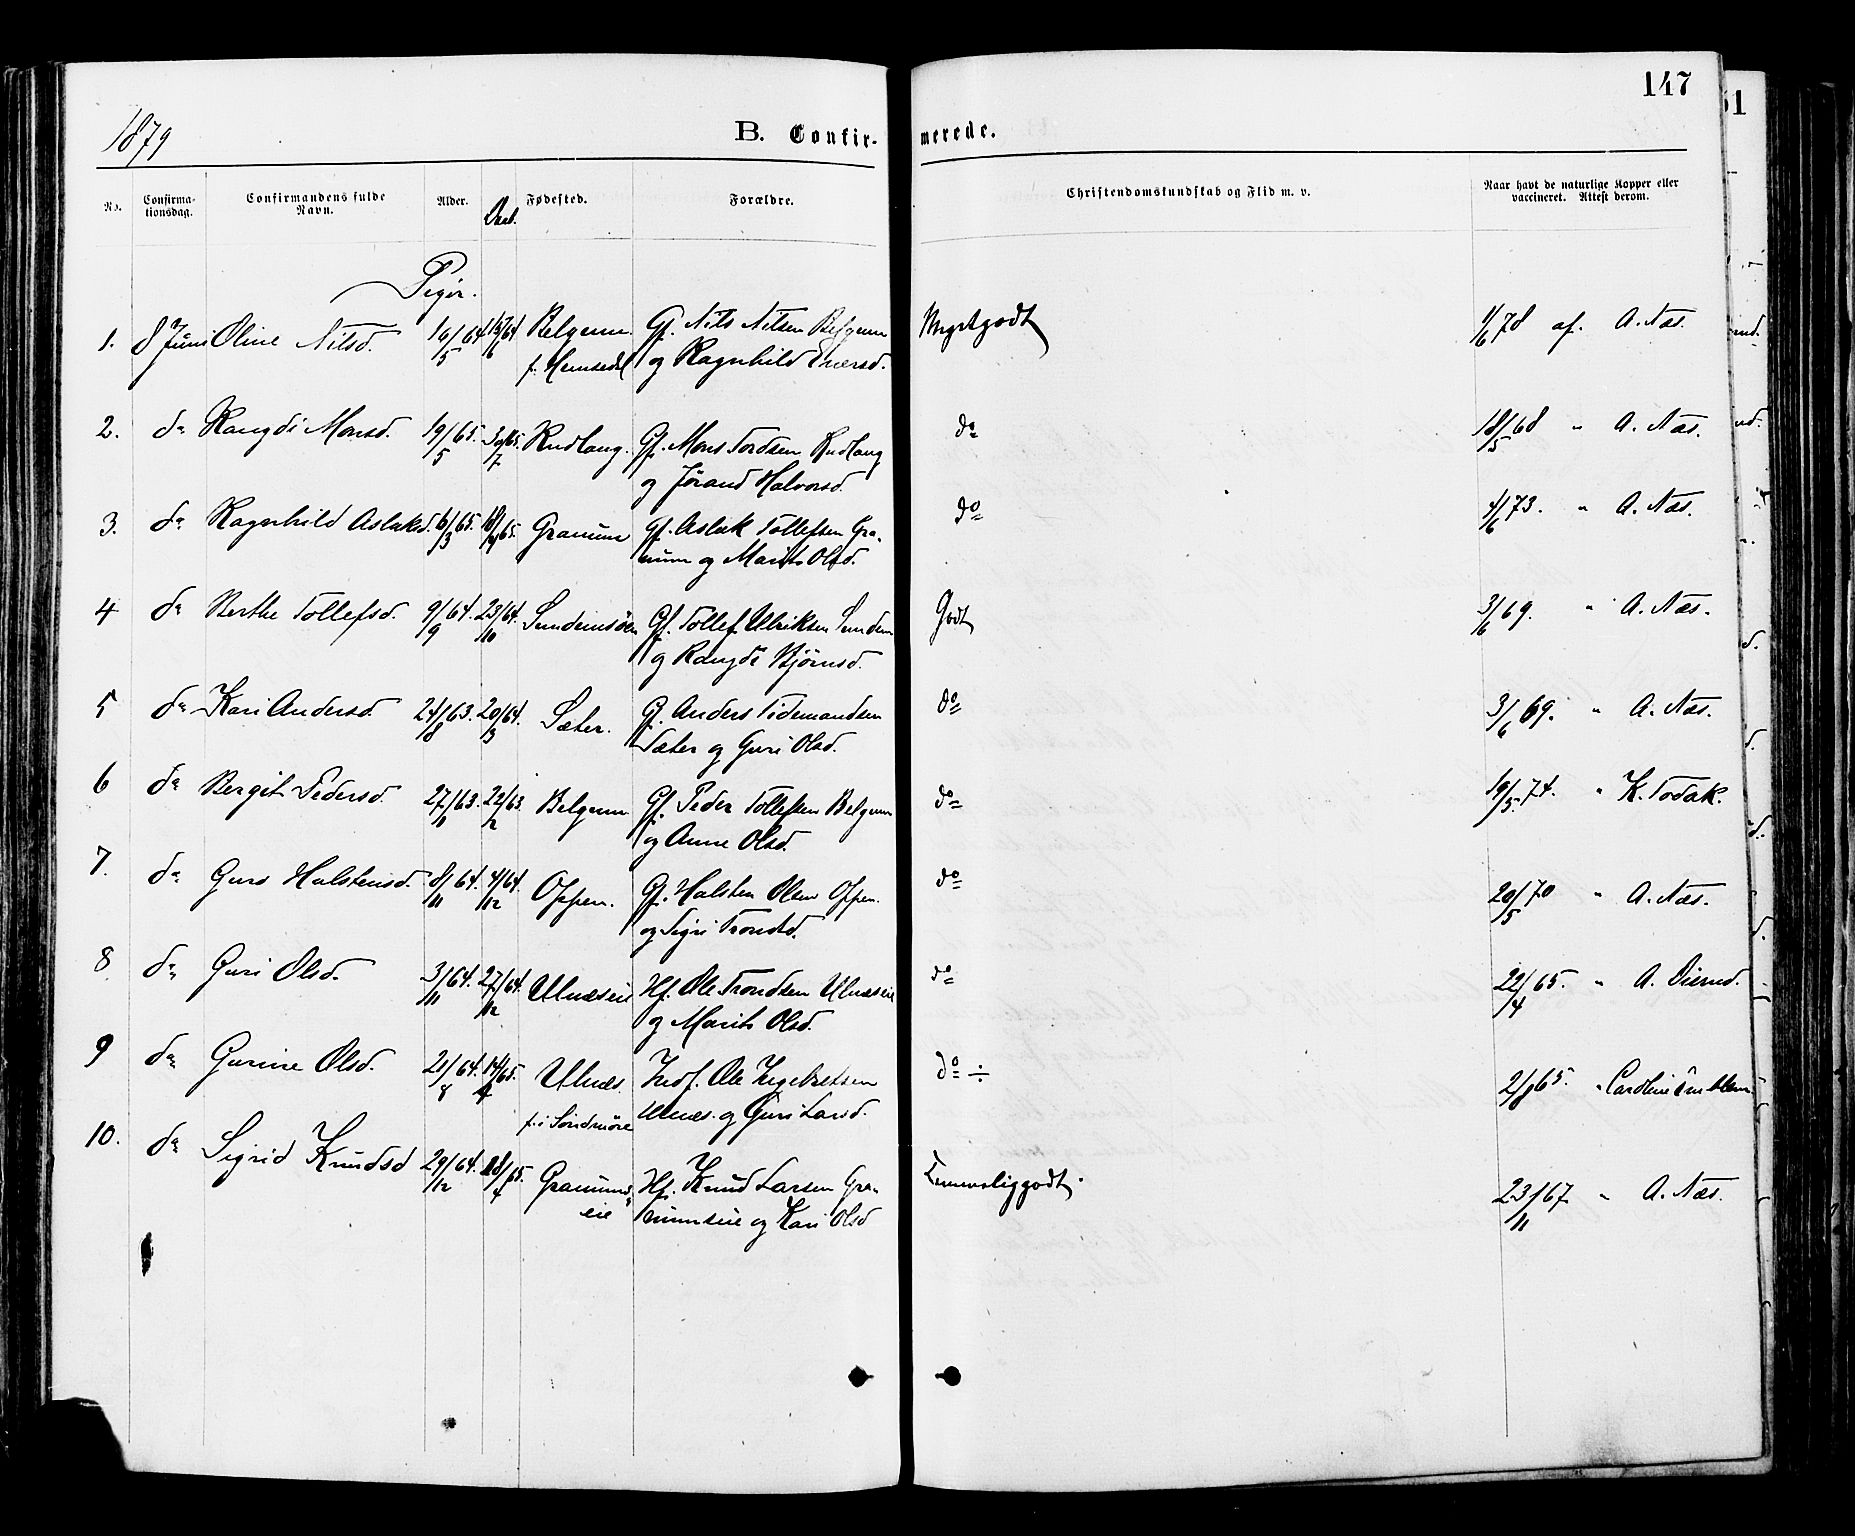 147
1879
B. Confirmerede.
No. Confirmationsdag. Confirmandens fulde Navn. Alder. Døbt. Fødested. Forældre. Christendomskundskab og Flid m. v. Naar havt de naturlige Kopper eller vaccineret. Attest derom.
Piger.
1. 8 Juni Oline Nilsd. 16/5 64 Belgum Gf. Nils Nilsen Belgum Megetgodt 1/6 78 af A. Næs.
f. Hemsedal og Ragnhild Enersd.
2. do Rangdi Monsd. 19/5 65. 30/7 65. Rudlang. Gf. Mons Tordsen Rudlang do 18/5 68 " A. Næs.
og Jørand Halvorsd.
3. do Ragnhild Aslaksd. 6/3 65. Granum Gf. Aslak Tollefsen Gra- do 4/6 73. " A. Næs.
num og Marit Olsd.
4 do Berthe Tollefsd. 9/9 64. 23/10 64. Gf. Tollef Ulriksen Godt 3/6 69. " A. Næs.
og Rangdi Bjørnsd.
5 do Kari Andersd. 24/8 63. 20/3 64. Sæter. Gf. Anders Tidemandsen do 3/6 69. " A. Næs.
Sæter og Guri Olsd.
6 do Bergit Pedersd. 22/2 63. Belgum Gf. Peder Tollefsen Belgum do 19/5 74. " K. Todak.
og Anne Olsd.
7. do Guro Halstensd. 8/11 64. 4/12 64. Oppen. Gf. Halsten Olsen Oppen. do 20/5 70 " A. Næs.
og Sigri Trondsd.
8 do Guri Olsd. 3/11 64. 27/12 64. Ulnæseie Hf. Ole Trondsen Ulnæseie do 22/4 65. " A.
og Marit Olsd.
9 do Gurine Olsd. 21/8 64. 14/4 65. Ulnæs. Indf. Ole Ingebretsen do ÷ 2/8 65. " Caroline Emblem
f. i Søndmøre Ulnæs. og Guri Larsd.
10. do Sigrid Knudsd 29/12 64. Granums- Hf. Knud Larsen Gra- Temmeliggodt. 23/11 67 " A. Næs.
eie numseie og Kari Olsd